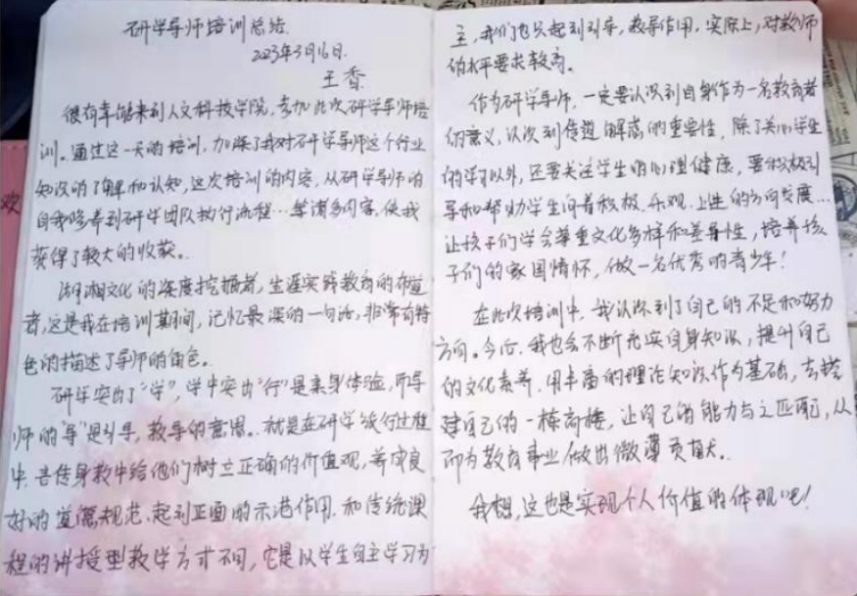 研学导师培训总结
2023年3月16日.
王香
很有幸能来到人文科技学院,参加此次研学导师培
训。通过这一天的培训,加深了我对研学导师这个行业
知识的了解和认知,这次培训的内容,从研学导师的
自我修养到研学团队执行流程…等诸多内容,使我
获得了较大的收获。
湖湘文化的深度挖掘者,生涯实践教育的布道
者,这是我在培训期间,记忆最深的一句话,非常有特
色的描述了导师的角色。
研学突出了“学”,学中突出“行”是亲身体验,而导
师的“导”是引导,教导的意思。就是在研学旅行过程
中.言传身教中给他们树立正确的价值观,养成良
好的道德规范.起到正面的示范作用.和传统课
程的讲授型教学方式不同,它是以学生自主学习为
主,我们也只起到引导,教导作用,实际上,对教师
的水平要求较高。
作为研学导师,一定要认识到自身作为一名教育者
的意义,认识到传道解惑的重要性,除了关心学生
的学习以外,还要关注学生的心理健康,要积极引
导和帮助学生向着积极.乐观.上进的方向发展…
让孩子们学会尊重文化多样和差异性,培养孩
子们的家国情怀,做一名优秀的青少年!
在此次培训中,我认识到了自己的不足和努力
方向。今后,我也会不断充实自身知识,提升自己
的文化素养.用丰富的理论知识作为基础,去搭
建自己的一栋高楼,让自己的能力与之匹配,从
而为教育事业做出微薄贡献。
我想,这也是实现个人价值的体现吧!
欢